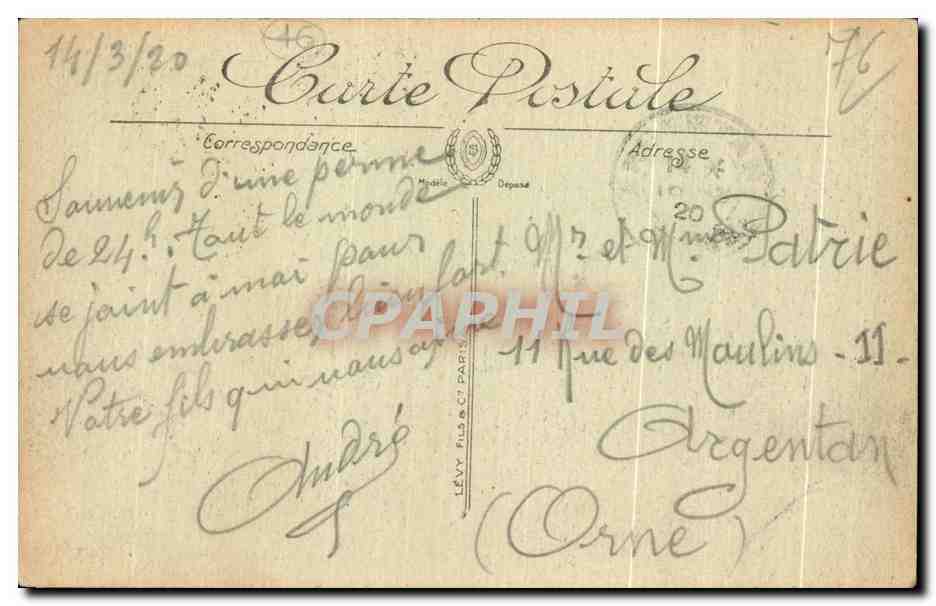 14/3/20
46
76
Carte Postale
Correspondance
Adresse
Modèle Déposé
S
20
Souvenir d'une perme
de 24h. Tout le monde
se joint à moi pour
vous embrasser bien fort.
Votre fils qui vous aime
André
Mr et Mme Patrie
11 Rue des Moulins - 11 -
Argentan
(Orne)
LÉVY FILS & Cie PARIS
CPAPHIL